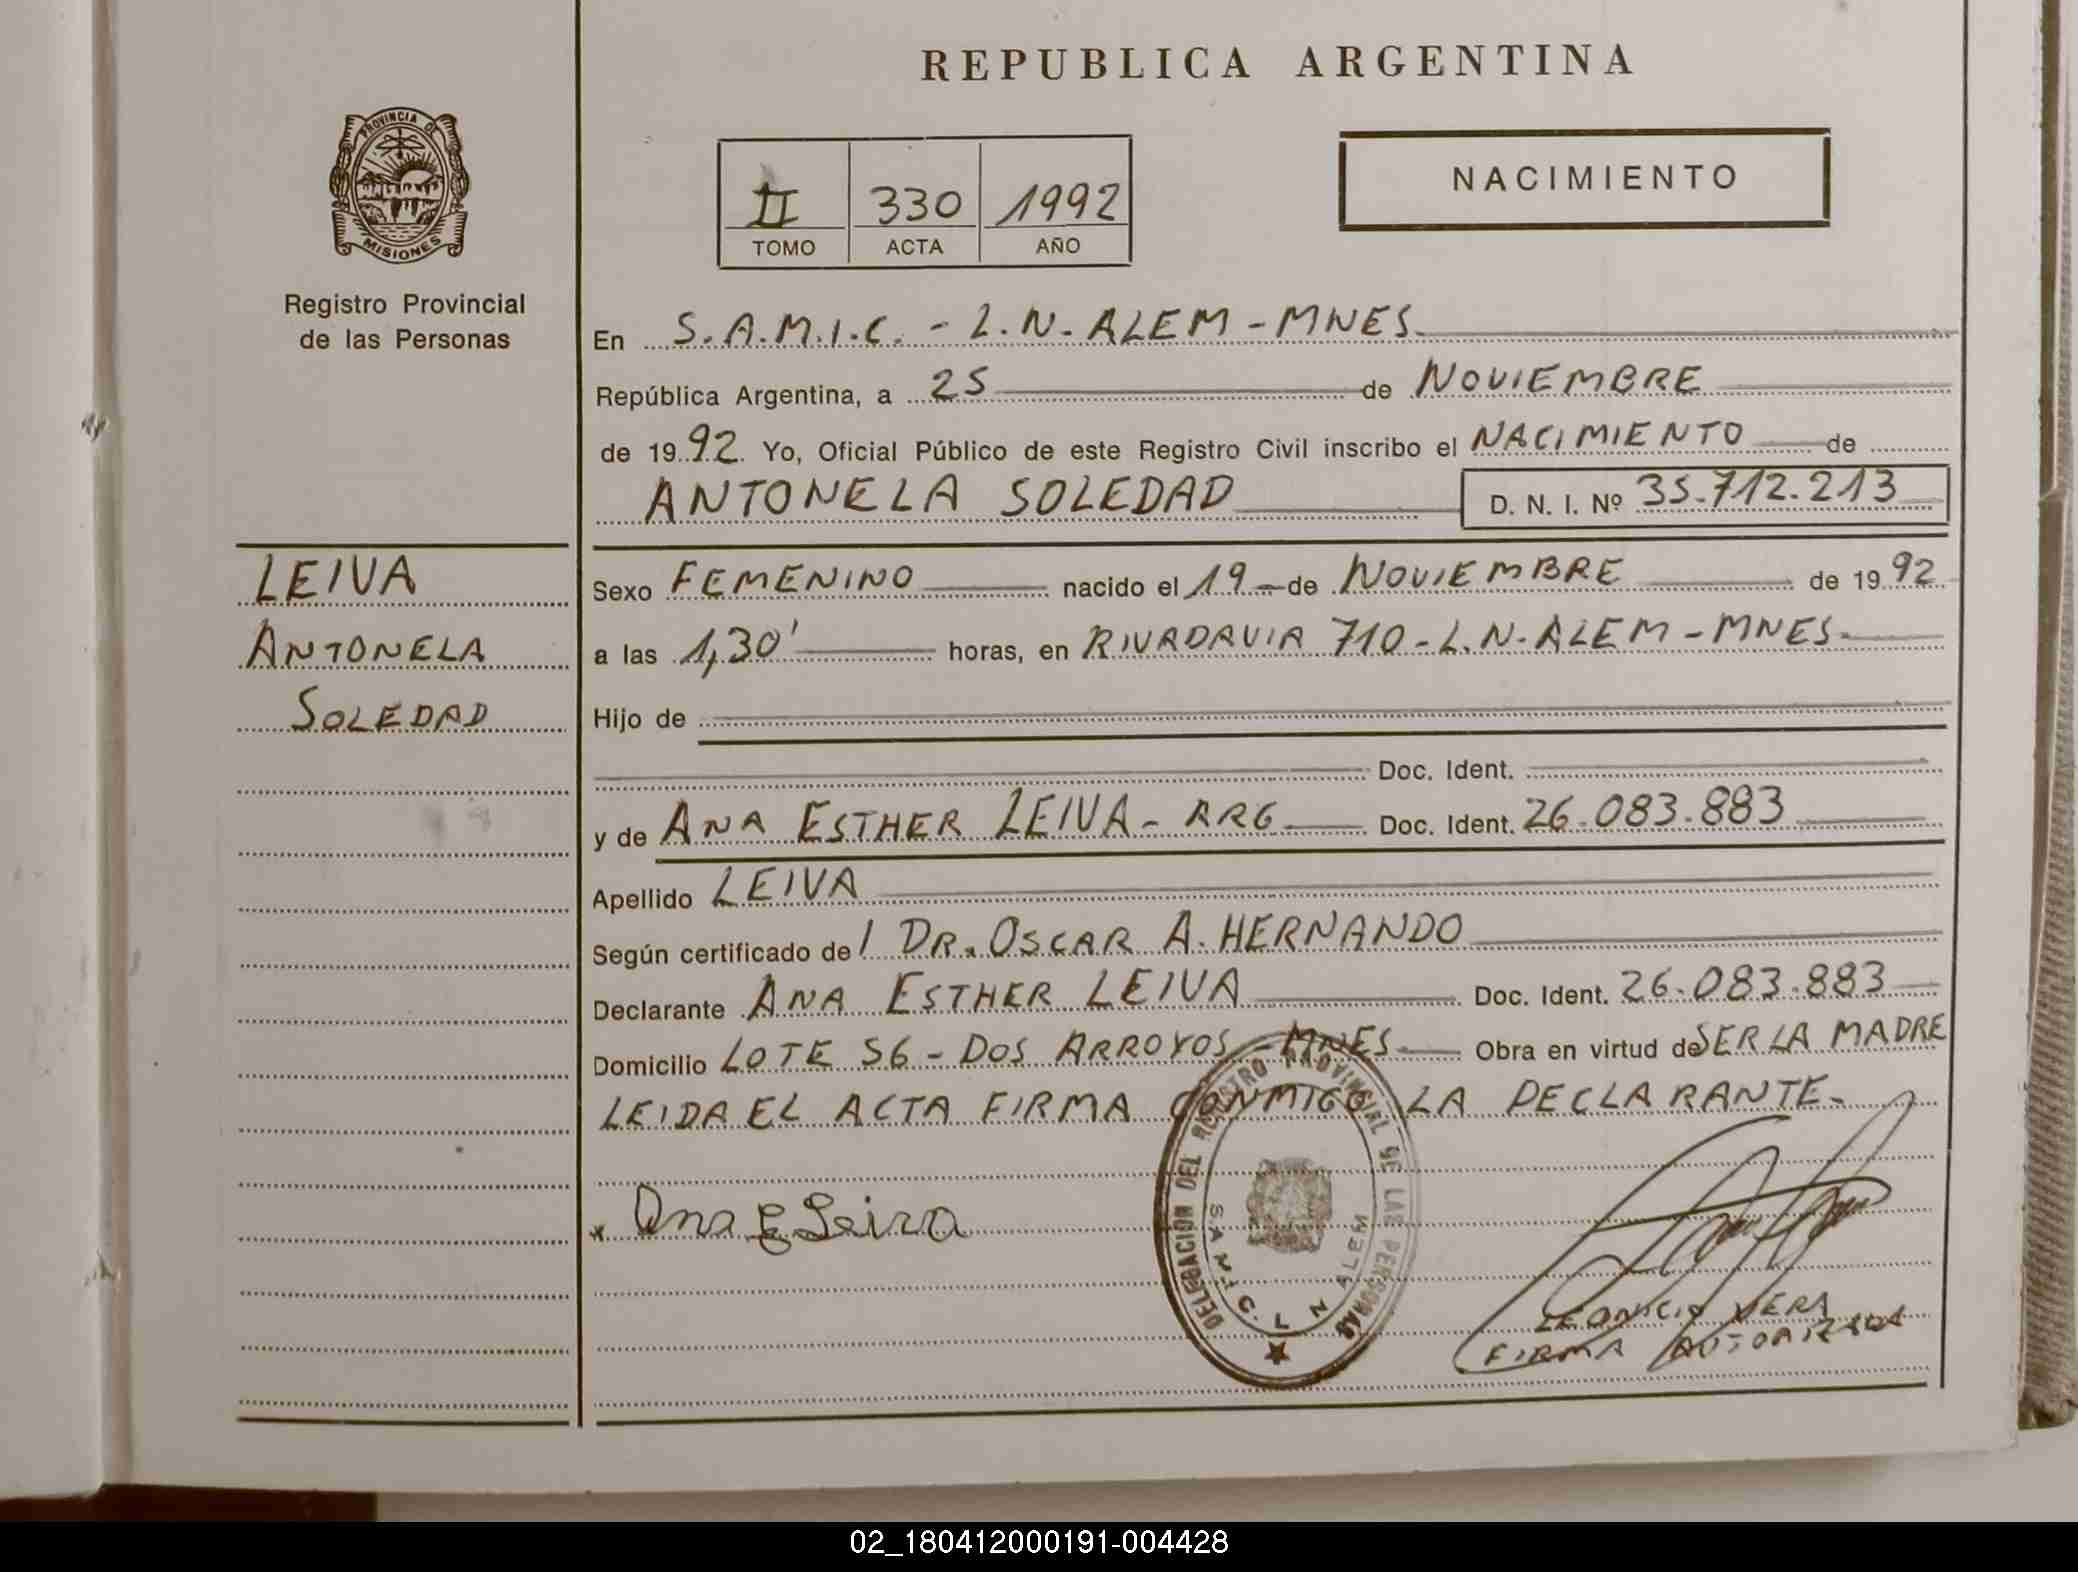 REPUBLICA ARGENTINA
PROVINCIA DE
MISIONES
Registro Provincial
de las Personas
II 330 1992
TOMO ACTA AÑO
NACIMIENTO
En S.A.M.I.C. - L.N. ALEM - MNES.
República Argentina, a 25 de NOVIEMBRE
de 1992. Yo, Oficial Público de este Registro Civil inscribo el NACIMIENTO de
ANTONELA SOLEDAD D. N. I. Nº 35.712.213
LEIVA
ANTONELA
SOLEDAD
Sexo FEMENINO nacido el 19 de NOVIEMBRE de 1992
a las 1,30' horas, en RIVADAVIA 710 - L.N. ALEM - MNES.
Hijo de
Doc. Ident.
y de ANA ESTHER LEIVA - ARG Doc. Ident. 26.083.883
Apellido LEIVA
Según certificado de l DR. OSCAR A. HERNANDO
Declarante ANA ESTHER LEIVA Doc. Ident. 26.083.883
Domicilio LOTE 56 - DOS ARROYOS - MNES Obra en virtud de SER LA MADRE
LEIDA EL ACTA FIRMA CONMIGO LA DECLARANTE.
x Ana E Leiva
DELEGACION DEL REGISTRO PROVINCIAL DE LAS PERSONAS
S.A.M.I.C. L N ALEM
LEONICIO VERA
FIRMA AUTORIZADA
02_180412000191-004428